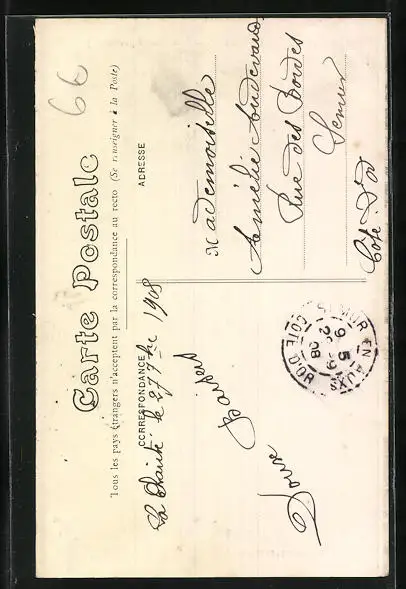 6€
Carte Postale
Tous les pays étrangers n'acceptent pas la correspondance au recto (Se renseigner à la Poste)
CORRESPONDANCE
ADRESSE
La Charité le 27 9bre 1908
Baisers
Mademoiselle
Amélie
Rue des Bordes
Semur
Côte d'or
SEMUR EN AUXOIS
CÔTE D'OR
08